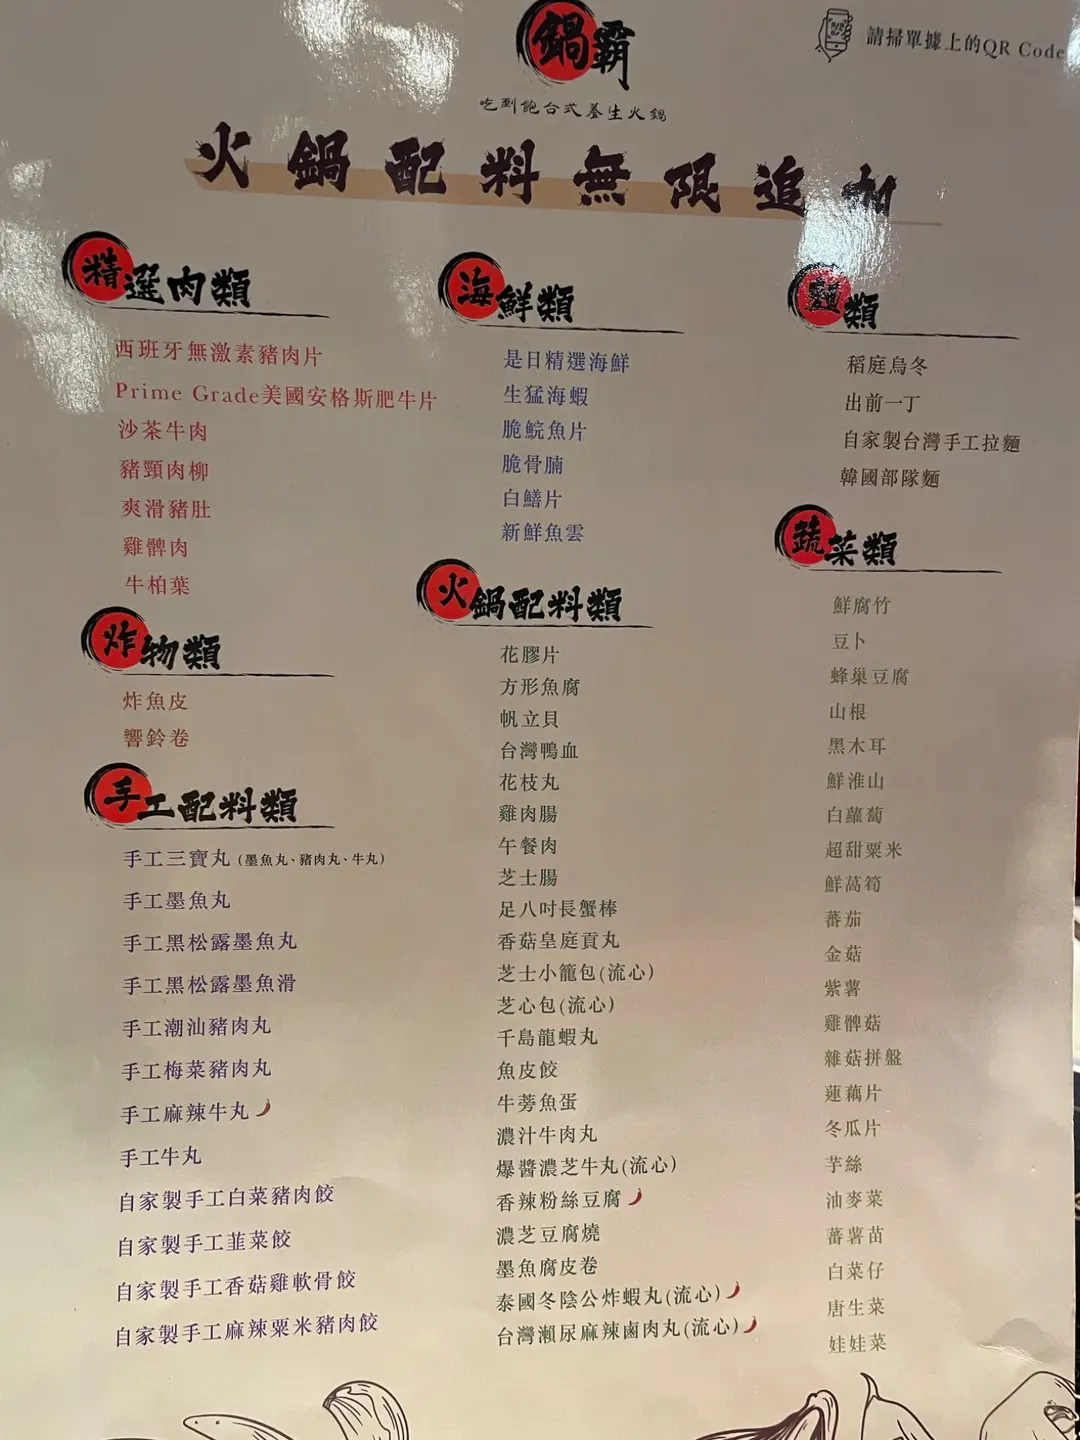 鍋霸
吃到飽台式養生火鍋
請掃單據上的QR Code
火鍋配料無限追加
精選肉類
西班牙無激素豬肉片
Prime Grade美國安格斯肥牛片
沙茶牛肉
豬頸肉柳
爽滑豬肚
雞髀肉
牛柏葉
炸物類
炸魚皮
響鈴卷
手工配料類
手工三寶丸(墨魚丸、豬肉丸、牛丸)
手工墨魚丸
手工黑松露墨魚丸
手工黑松露墨魚滑
手工潮汕豬肉丸
手工梅菜豬肉丸
手工麻辣牛丸
手工牛丸
自家製手工白菜豬肉餃
自家製手工韮菜餃
自家製手工香菇雞軟骨餃
自家製手工麻辣粟米豬肉餃
海鮮類
是日精選海鮮
生猛海蝦
脆鯇魚片
脆骨腩
白鱔片
新鮮魚雲
火鍋配料類
花膠片
方形魚腐
帆立貝
台灣鴨血
花枝丸
雞肉腸
午餐肉
芝士腸
足八吋長蟹棒
香菇皇庭貢丸
芝士小籠包(流心)
芝心包(流心)
千島龍蝦丸
魚皮餃
牛蒡魚蛋
濃汁牛肉丸
爆醬濃芝牛丸(流心)
香辣粉絲豆腐
濃芝豆腐燒
墨魚腐皮卷
泰國冬陰公炸蝦丸(流心)
台灣瀨尿麻辣鹵肉丸(流心)
麵類
稻庭烏冬
出前一丁
自家製台灣手工拉麵
韓國部隊麵
蔬菜類
鮮腐竹
豆卜
蜂巢豆腐
山根
黑木耳
鮮淮山
白蘿蔔
超甜粟米
鮮萵筍
蕃茄
金菇
紫薯
雞髀菇
雜菇拼盤
蓮藕片
冬瓜片
芋絲
油麥菜
蕃薯苗
白菜仔
唐生菜
娃娃菜